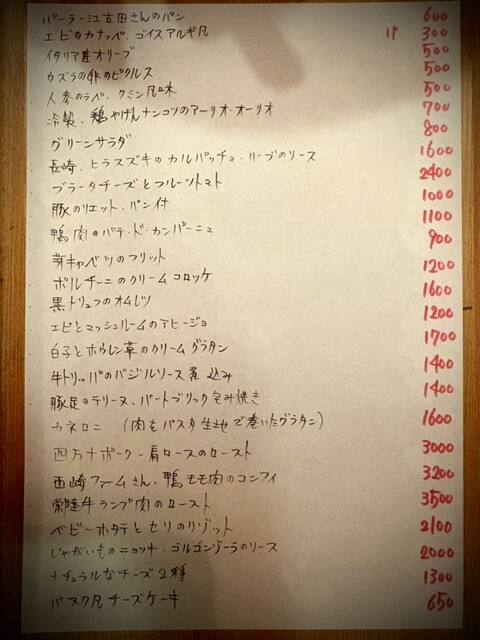 パーラー江古田さんのパン 600
エビのカナッペ、ゴイスアルギ風 1P 300
イタリア産オリーブ 500
ウズラの卵のピクルス 500
人参のラペ、クミン風味 500
冷製、鶏やげんナンコツのアーリオ・オーリオ 700
グリーンサラダ 800
長崎、ヒラスズキのカルパッチョ・ハーブのソース 1600
ブラータチーズとフルーツトマト 2400
豚のリエット、パン付 1000
鴨肉のパテ・ド・カンパーニュ 1100
芽キャベツのフリット 900
ポルチーニのクリームコロッケ 1200
黒トリュフのオムレツ 1600
エビとマッシュルームのアヒージョ 1200
白子とホウレン草のクリームグラタン 1700
牛トリッパのバジルソース煮込み 1400
豚足のテリーヌ、パートブリック包み焼き 1400
カネロニ (肉をパスタ生地で巻いたグラタン) 1600
四万十ポーク-肩ロースのロースト 3000
西崎ファームさん、鴨モモ肉のコンフィ 3200
常陸牛ランプ肉のロースト 3500
ベビーホタテとセリのリゾット 2100
じゃがいものニョッキ、ゴルゴンゾーラのソース 2000
ナチュラルなチーズ2種 1300
バスク風チーズケーキ 650